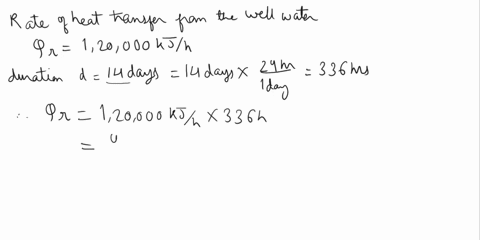 Rate of heat transfer from the well water
Qr = 1,20,000 kJ/h
duration d = 14 days = 14 days × 24 hr / 1 day = 336 hrs
∴ Qr = 1,20,000 kJ/h × 336 h
=